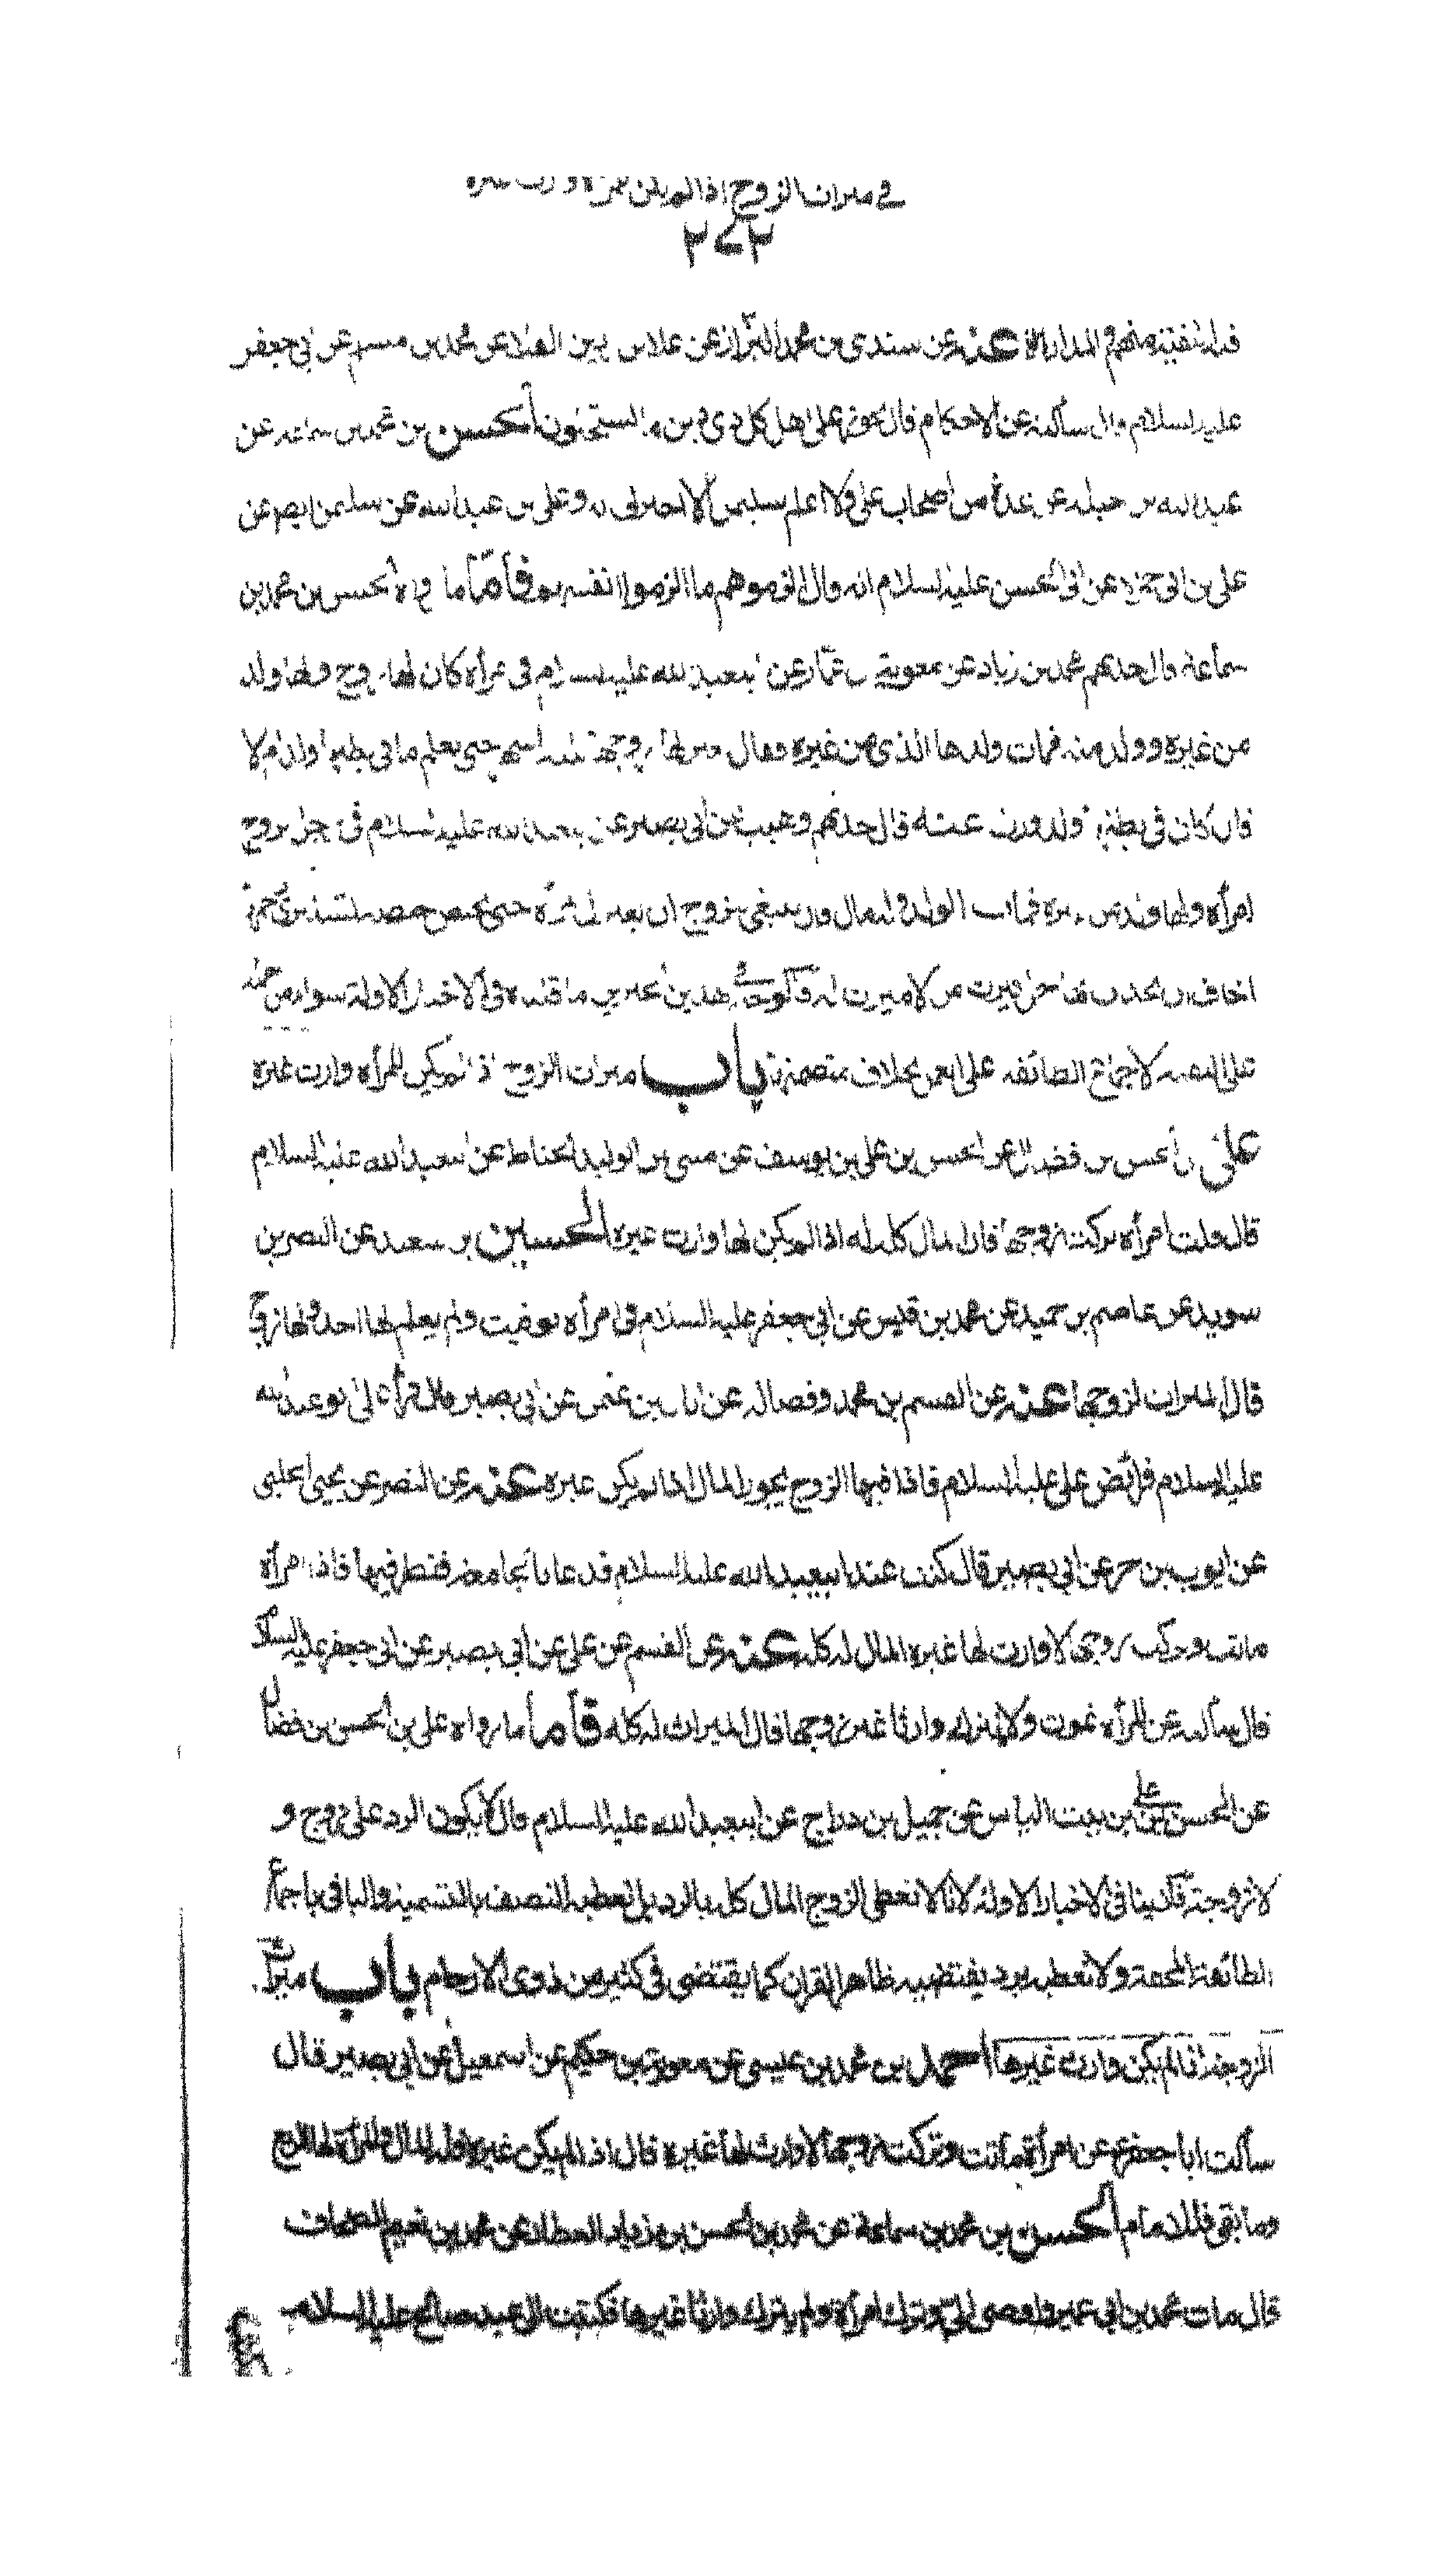 في ميراث الزوج اذا لم يكن للمرأة وارث غيره
٢٧٢
منهم والمداراة عنه عن سندي بن محمد البزاز عن علا بن رزين القلا عن محمد بن مسلم عن ابي جعفر
عليه السلام قال سألته عن الاحكام قال يجوز على اهل كل دين ما يستحلون الحسن بن محمد بن سماعه عن
عبد الله بن جبله عن عدة من اصحاب علي ولا اعلم سليمن الا اخبرني به وعلي بن عبد الله عن سليمن ايضا عن
علي بن ابي حمزة عن ابي الحسن عليه السلام انه قال الزموهم ما الزموا انفسهم فأما ما رواه الحسن بن محمد بن
سماعة قال حدثهم محمد بن زياد عن معوية بن عمار عن ابيعبد الله عليه السلام في امرأة كان لها زوج ولها ولد
من غيره وولد منه فمات ولدها الذي من غيره فقال يعتزلها زوجها ثلثه اشهر حتى يعلم ما في بطنها ولد ام لا
فان كان في بطنها ولد ورث عنه قال حدثهم وهيب عن ابي بصير عن ابيعبد الله عليه السلام في رجل تزوج
امرأة ولها ولد من غيره فمات الولد وله مال قال ينبغي للزوج ان يعتزل المرأة حتى تحيض حيضه تستبرئ رحمها
اخاف ان يحدث بها حمل فيرث من لا ميراث له فالوجه في هذين الخبرين ما قلناه في الاخبار الاولة سواء من حملها
على التقيه لاجماع الطائفه على العمل بخلاف متضمنها باب ميراث الزوج اذا لم يكن للمرأه وارث غيره
علي بن الحسن بن فضال عن الحسن بن علي بن يوسف عن مثنى بن الوليد الحناط عن ابيعبد الله عليه السلام
قال قلت امرأه تركت زوجها قال المال كله له اذا لم يكن لها وارث غيره الحسين بن سعيد عن النضر بن
سويد عن عاصم بن حميد عن محمد بن قيس عن ابي جعفر عليه السلام في امرأه توفيت ولم يعلم لها احد ولها زوج
قال الميراث لزوجها عنه عن القسم بن محمد وفضاله عن ابان بن عثمن عن ابي بصير قال قرأ علي ابو عبد الله
عليه السلام فرائض علي عليه السلام فاذا فيها الزوج يحوز المال اذا لم يكن غيره عنه عن النضر عن يحيى الحلبي
عن ايوب بن حر عن ابي بصير قال كنت عند ابيعبد الله عليه السلام فدعا بالجامعه فنظر فيها فاذا امرأة
ماتت وتركت زوجها لا وارث لها غيره المال له كله عنه عن القسم عن علي عن ابي بصير عن ابي جعفر عليه السلام
قال سألته عن المرأه تموت ولا تترك وارثا غير زوجها قال الميراث له كله فأما ما رواه علي بن الحسن بن فضال
عن الحسن بن علي بن بنت الياس عن جميل بن دراج عن ابيعبد الله عليه السلام قال لا يكون الرد على زوج و
لا زوجة فلا ينافي الاخبار الاولة لانا لا نعطي الزوج المال كله بالرد بل نعطيه النصف بالتسمية والباقي باجماع
الطائفة المحقة ولا نعطيه برد يقتضيه ظاهر القران كما يقتضى في كثير من ذوي الارحام باب ميراث
الزوجة اذا لم يكن وارث غيرها احمد بن محمد بن عيسى عن معوية بن حكيم عن اسمعيل عن ابي بصير قال
سألت ابا جعفر ع عن امرأة ماتت وتركت زوجها لا وارث لها غيره قال اذا لم يكن غيره فله المال والمرأة لها الربع
وما بقي فللامام الحسن بن محمد بن سماعة عن محمد بن الحسن بن زياد العطار عن محمد بن نعيم الصحاف
قال مات محمد بن ابي عمير واوصى الي وترك امرأة ولم يترك وارثا غيرها فكتبت الى عبد صالح عليه السلام